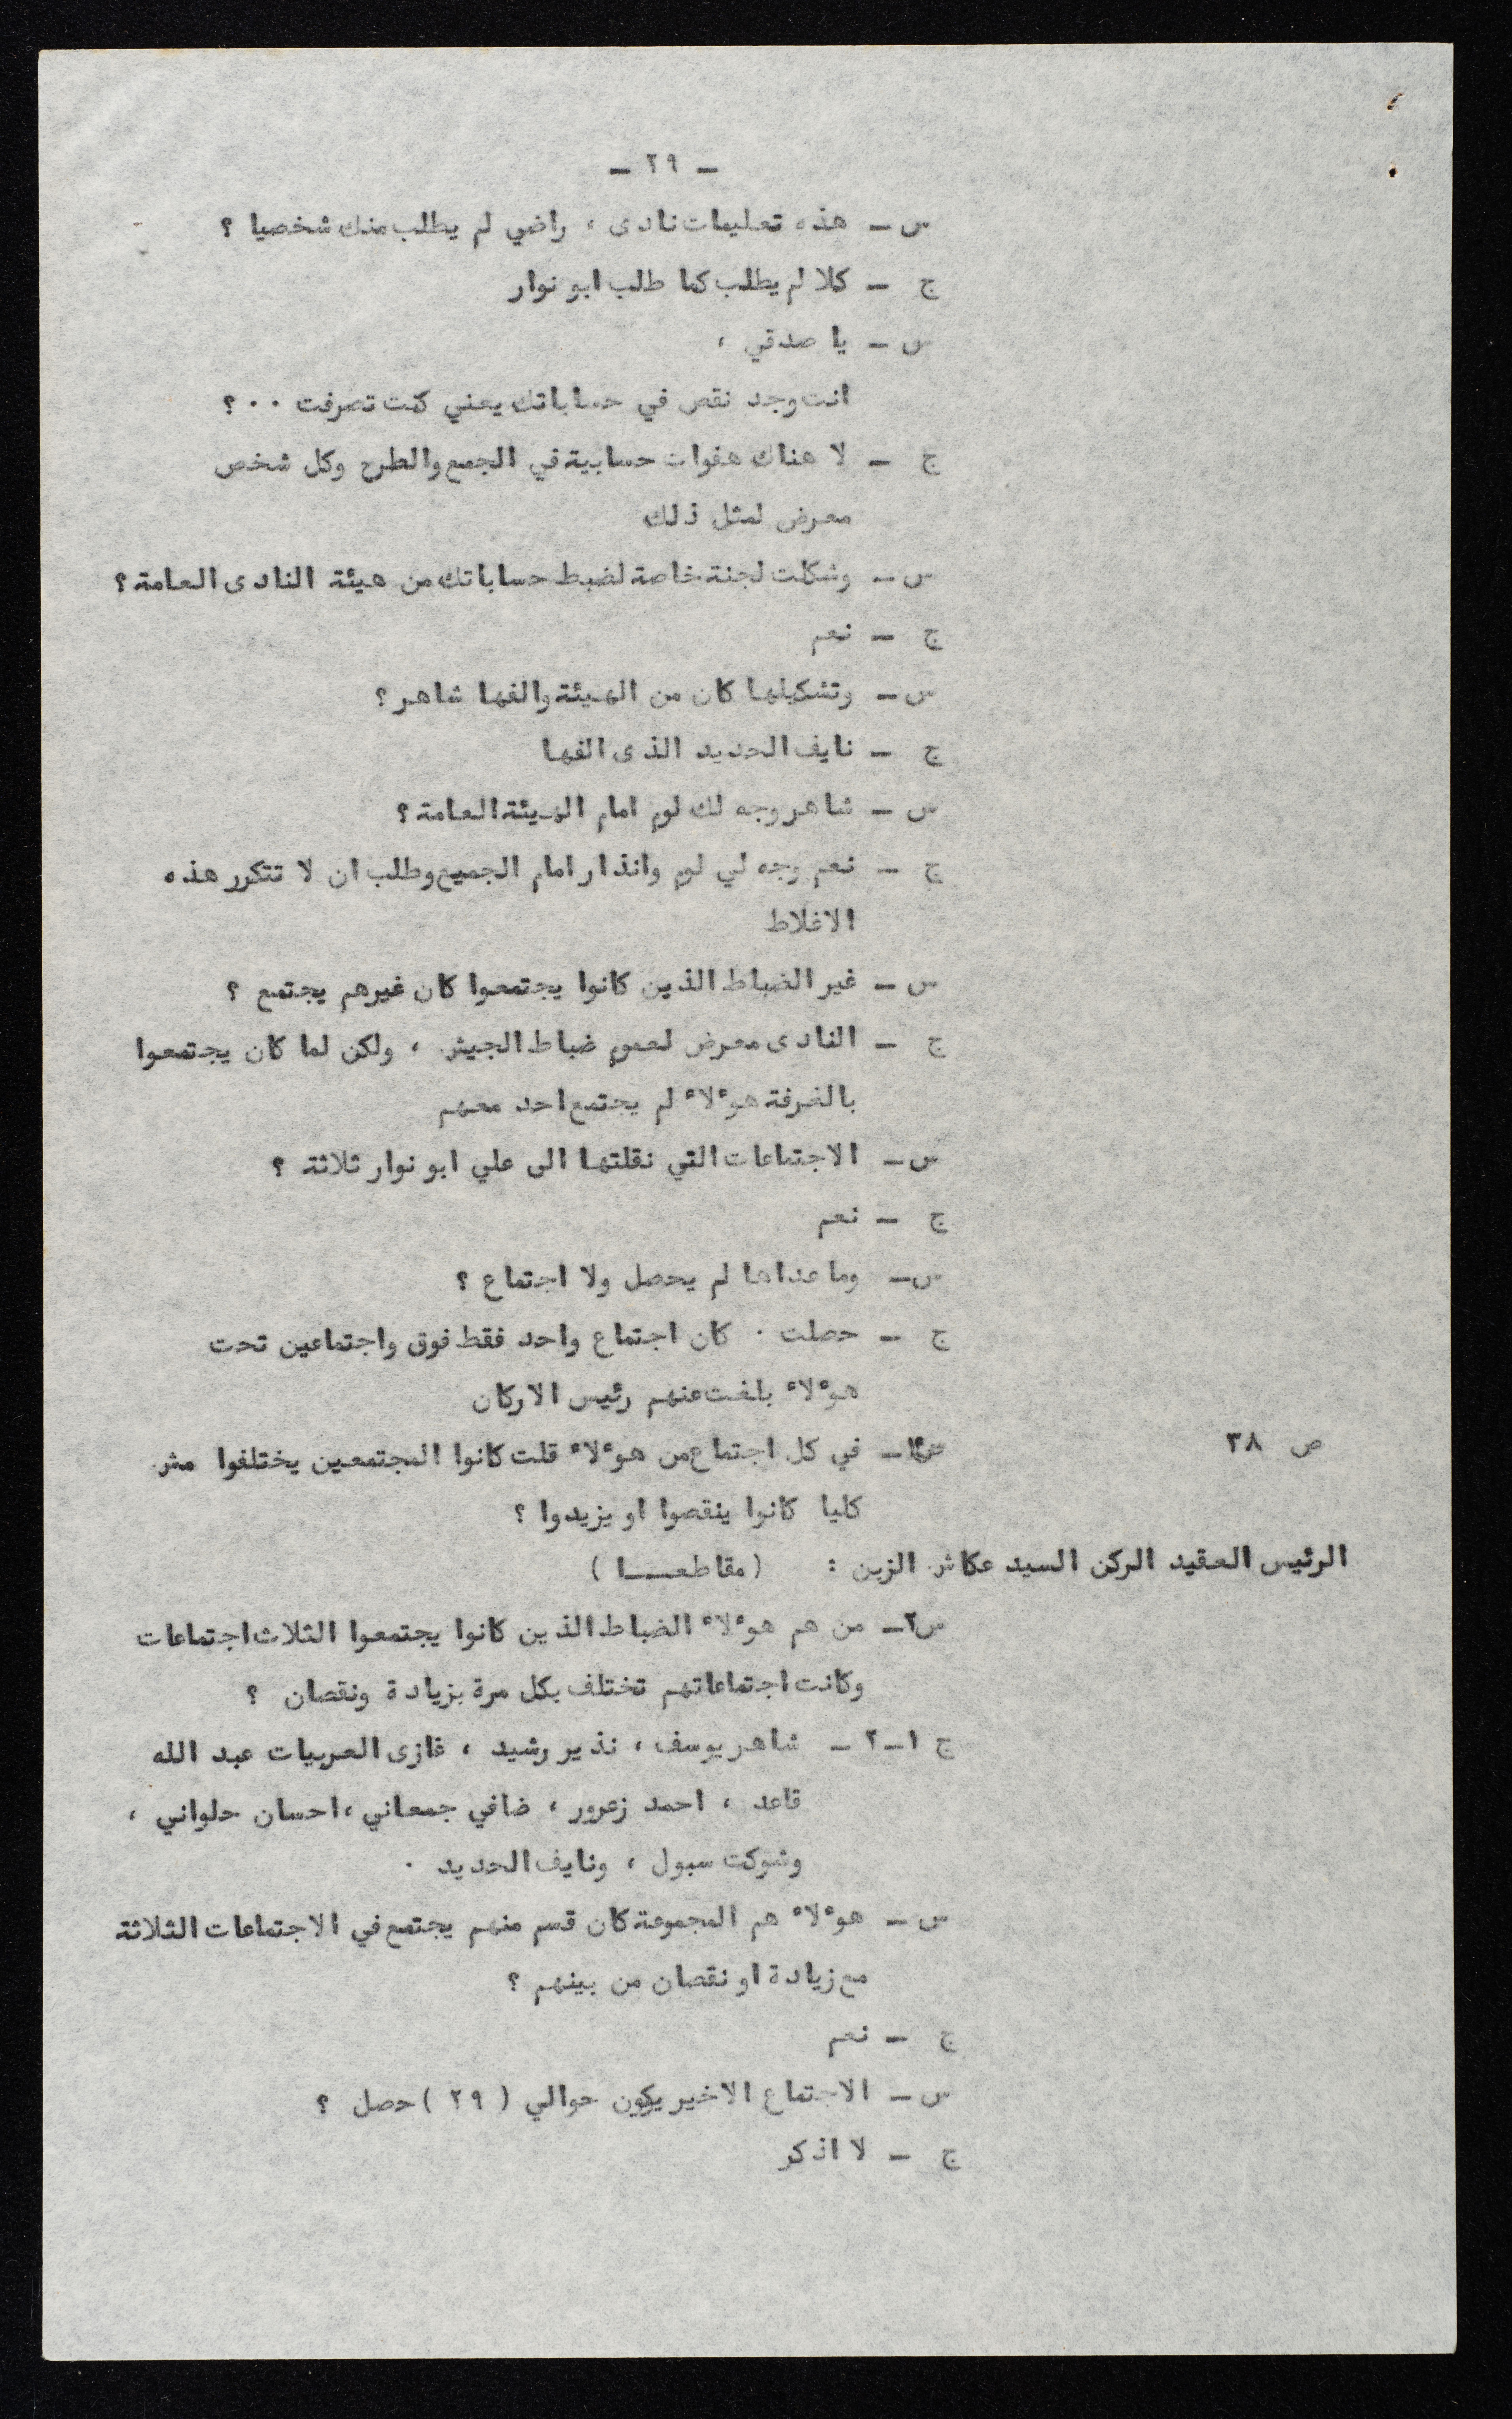 ـ ٢٩ ـ
س ـ هذه تعليمات نادى ، راضي لم يطلب منك شخصيا ؟
ج ـ كلا لم يطلب كما طلب ابو نوار
س ـ يا صدقي ،
انت وجد نقص في حساباتك يعني كنت تصرفت ٠٠ ؟
ج ـ لا هناك هفوات حسابية في الجمع والطرح وكل شخص
معرض لمثل ذلك
س ـ وشكلت لجنة خاصة لضبط حساباتك من هيئة النادى العامة ؟
ج ـ نعم
س ـ وتشكيلها كان من الهيئة والفها شاهر ؟
ج ـ نايف الحديد الذى الفها
س ـ شاهر وجه لك لوم امام الهيئة العامة ؟
ج ـ نعم وجه لي لوم وانذار امام الجميع وطلب ان لا تتكرر هذه
الاغلاط
س ـ غير الضباط الذين كانوا يجتمعوا كان غيرهم يجتمع ؟
ج ـ النادى معرض لعموم ضباط الجيش ، ولكن لما كان يجتمعوا
بالغرفة هوءلاء لم يجتمع احد معهم
س ـ الاجتماعات التي نقلتها الى علي ابو نوار ثلاثة ؟
ج ـ نعم
س ـ وما عداها لم يحصل ولا اجتماع ؟
ج ـ حصلت ٠ كان اجتماع واحد فقط فوق واجتماعين تحت
هوءلاء بلغت عنهم رئيس الاركان
ص ٣٨ س١ـ في كل اجتماع من هوءلاء قلت كانوا المجتمعين يختلفوا مش
كليا كانوا ينقصوا او يزيدوا ؟
الرئيس العقيد الركن السيد عكاش الزبن : ( مقاطعـــا )
س٢ـ من هم هوءلاء الضباط الذين كانوا يجتمعوا الثلاث اجتماعات
وكانت اجتماعاتهم تختلف بكل مرة بزيادة ونقصان ؟
ج ١ـ٢ ـ شاهر يوسف ، نذير رشيد ، غازى العربيات عبد الله
قاعد ، احمد زعرور ، ضافي جمعاني ، احسان حلواني ،
وشوكت سبول ، ونايف الحديد ٠
س ـ هوءلاء هم المجموعة كان قسم منهم يجتمع في الاجتماعات الثلاثة
مع زيادة او نقصان من بينهم ؟
ج ـ نعم
س ـ الاجتماع الاخير يكون حوالي ( ٢٩ ) حصل ؟
ج ـ لا اذكر